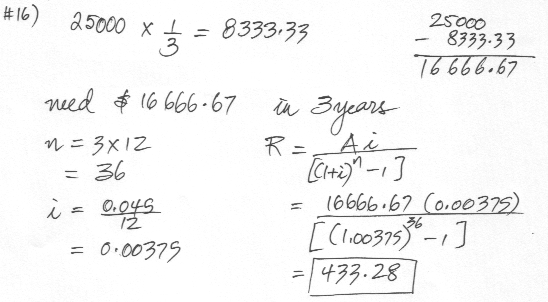 #16) 25000 × 1/3 = 8333.33
25000
- 8333.33
16666.67
need $ 16666.67 in 3 years
n = 3×12
= 36
i = 0.045/12
= 0.00375
R = Ai/[(1+i)^n -1]
= 16666.67 (0.00375)/[(1.00375)^36 -1]
= 433.28